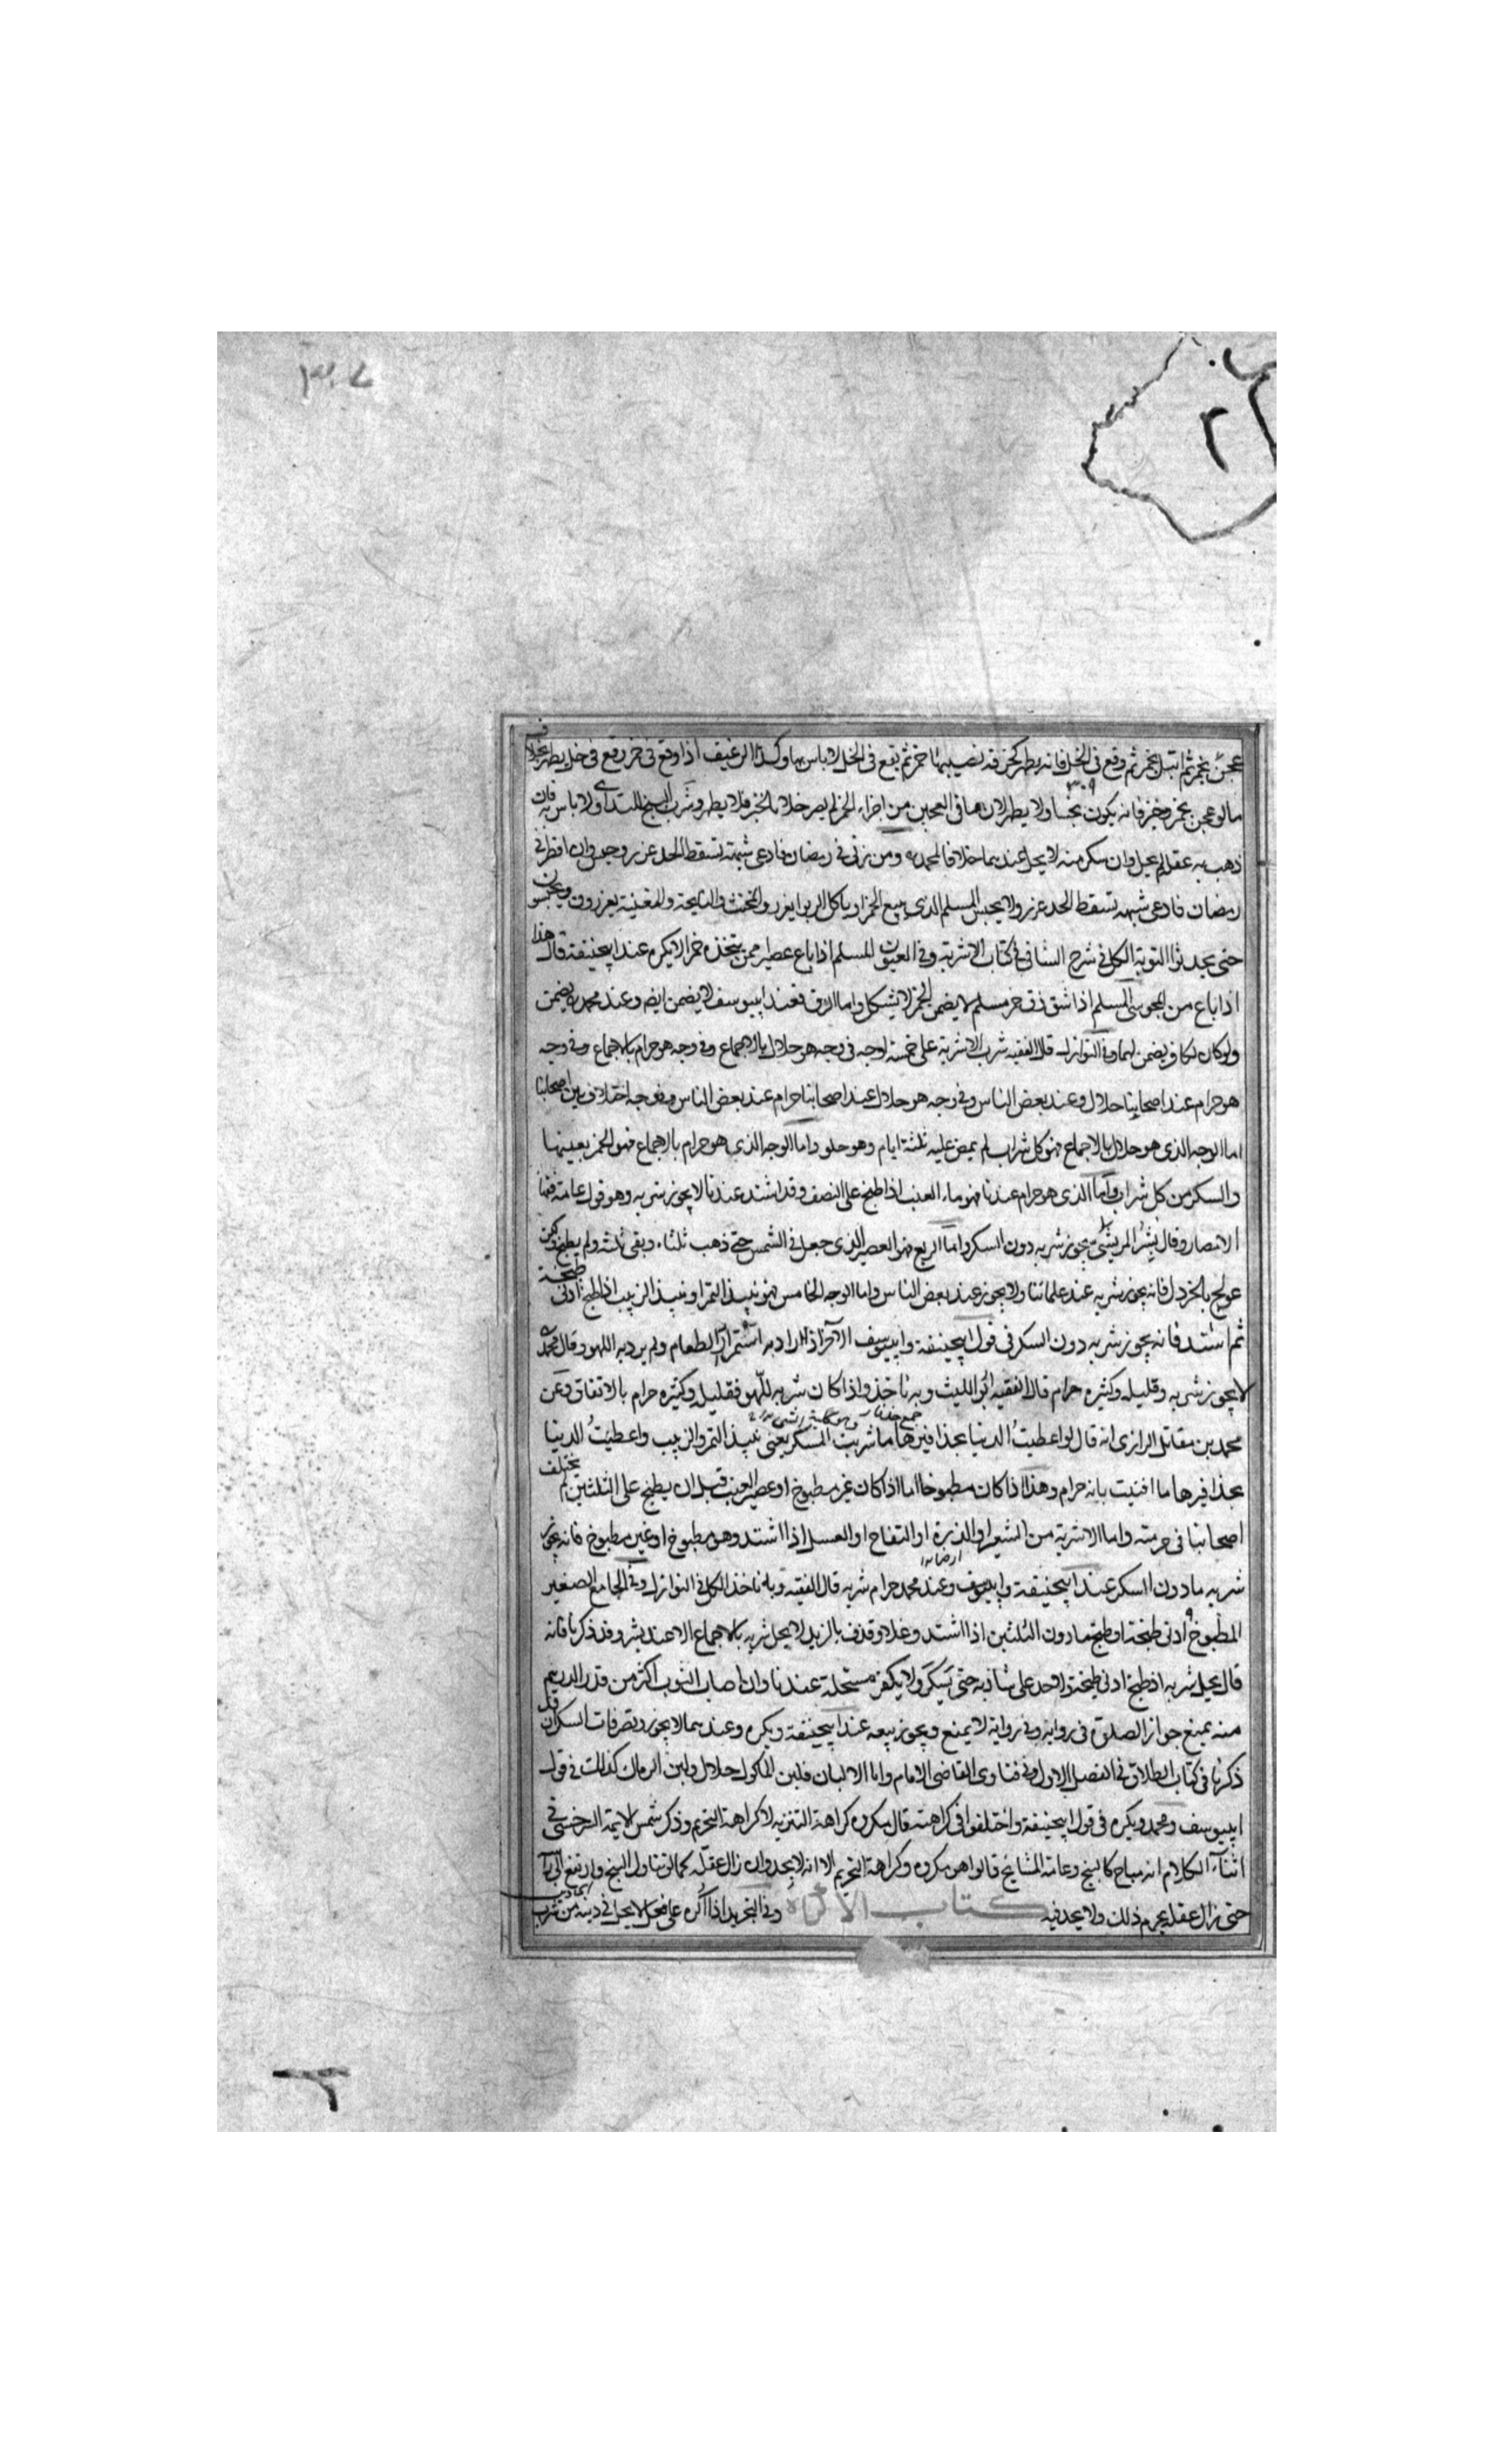 ٣٠٧
٢
عجن بخمر ثم ابتل بخمر ثم وقع في الخل فانه يطهر كخرقة نصيبها خمر ثم يقع في الخل لا باس بها وكذا الرغيف اذا وقع في خمر وقع في خل يطهر بخلاف
٣٠٩
ما لو عجن بخمر وخبز فانه يكون نجسا ولا يطهر لان ما في العجين من اجزاء الخمر لم يصر خلا بالخبز فلا يطهر وشرب البنج للتداوي ولا باس به فان
ذهب به عقله لم يحل وان سكر منه لا يحد عندهما خلافا لمحمد ومن زنى في رمضان فادعى شبهة تسقط الحد عزر وحبس وان افطر في
رمضان فادعى شبهة تسقط الحد عزر ولا يحبس المسلم الذي يبيع الخمر او ياكل الربوا يعزر والمخنث والنايحة والمغنية يعزرون ويحبسون
حتى يحدثوا التوبة الكل في شرح الشافي في كتاب الاشربة وفي العيون المسلم اذا باع عصيرا ممن يتخذه خمرا لا يكره عند ابيحنيفة قال هذا
اذا باع من المجوسي المسلم اذا شق زق خمر مسلم لا يضمن الخمر لا يشكل واما الزق فعند ابيوسف لا يضمن ايضا وعند محمد يضمن
ولو كان لكافر يضمن لهما وفي النوازل قال الفقيه شرب الاشربة على خمسة اوجه في وجه هو حلال بالاجماع وفي وجه هو حرام بالاجماع وفي وجه
هو حرام عند اصحابنا حلال وعند بعض الناس وفي وجه هو حلال عند اصحابنا حرام عند بعض الناس وفي وجه اختلاف بين اصحابنا
اما الوجه الذي هو حلال بالاجماع فهو كل شراب لم يمض عليه ثلثة ايام وهو حلو واما الوجه الذي هو حرام بالاجماع فهو الخمر بعينها
والسكر من كل شراب واما الذي هو حرام عندنا فهو ماء العنب اذا طبخ على النصف وقد اشتد عندنا لا يجوز شربه وهو قول عامة فقهاء
الانصار وقال بشر المريسي يجوز شربه دون السكر واما الرابع فهو العصير الذي جعل في الشمس حتى ذهب ثلثاه وبقي ثلثه ولم يطبخ ولكن
عولج بالخردل فانه يجوز شربه عند علمائنا ولا يجوز عند بعض الناس واما الوجه الخامس فهو نبيذ التمر او نبيذ الزبيب اذا طبخ ادنى طبخة
ثم اشتد فانه يجوز شربه دون السكر في قول ابيحنيفة وابيوسف الآخر اذا اراد به استمراء الطعام ولم يرد به اللهو وقال محمد
لا يجوز شربه وقليله وكثيره حرام قال الفقيه ابو الليث وبه ناخذ واذا كان شربه للهو فقليله وكثيره حرام بالاتفاق وعن
محمد بن مقاتل الرازي انه قال لو اعطيت الدنيا بحذافيرها ما شربت المسكر يعني نبيذ التمر والزبيب واعطيت الدنيا
بحذافيرها ما افتيت بانه حرام وهذا اذا كان مطبوخا اما اذا كان غير مطبوخ او عصير العنب قبل ان يطبخ على الثلثين لم يختلف
اصحابنا في حرمته واما الاشربة من الشعير او الذرة او التفاح او العسل اذا اشتد وهو مطبوخ او غير مطبوخ فانه يجوز
شربه ما دون السكر عند ابيحنيفة وابيوسف وعند محمد حرام شربه قال الفقيه وبه ناخذ الكل في النوازل وفي الجامع الصغير
المطبوخ ادنى طبخة او طبخ ما دون الثلثين اذا اشتد وغلا وقذف بالزبد لا يحل شربه بالاجماع الا عند بشر وقد ذكرنا فانه
قال يحل شربه اذ طبخ ادنى طبخة ولا حد على شاربه حتى يسكر ولا يكفر مستحله عندنا وان اصاب الثوب اكثر من قدر الدرهم
منه يمنع جواز الصلوة في رواية وفي رواية لا يمنع ويجوز بيعه عند ابيحنيفة ويكره وعندهما لا يجوز وتصرفات السكران قد
ذكرنا في كتاب الطلاق في الفصل الاول وفي فتاوى القاضي الامام واما الالبان فلبن الماكول حلال ولبن الرماك كذلك في قول
ابيوسف ومحمد ويكره في قول ابيحنيفة واختلفوا في كراهته قال مكروه كراهة التنزيه لا كراهة التحريم وذكر شمس الايمة السرخسي في
اثناء الكلام انه مباح كالبنج وعامة المشايخ قالوا هو مكروه وكراهة التحريم الا انه لا يحد وان زال عقله كما لو تناول البنج وارتفع الى راسه
حتى زال عقله يحرم ذلك ولا يحد فيه كتاب الاكراه وفي التجريد اذا اكره على فعل لا يحل في دينه من شرب